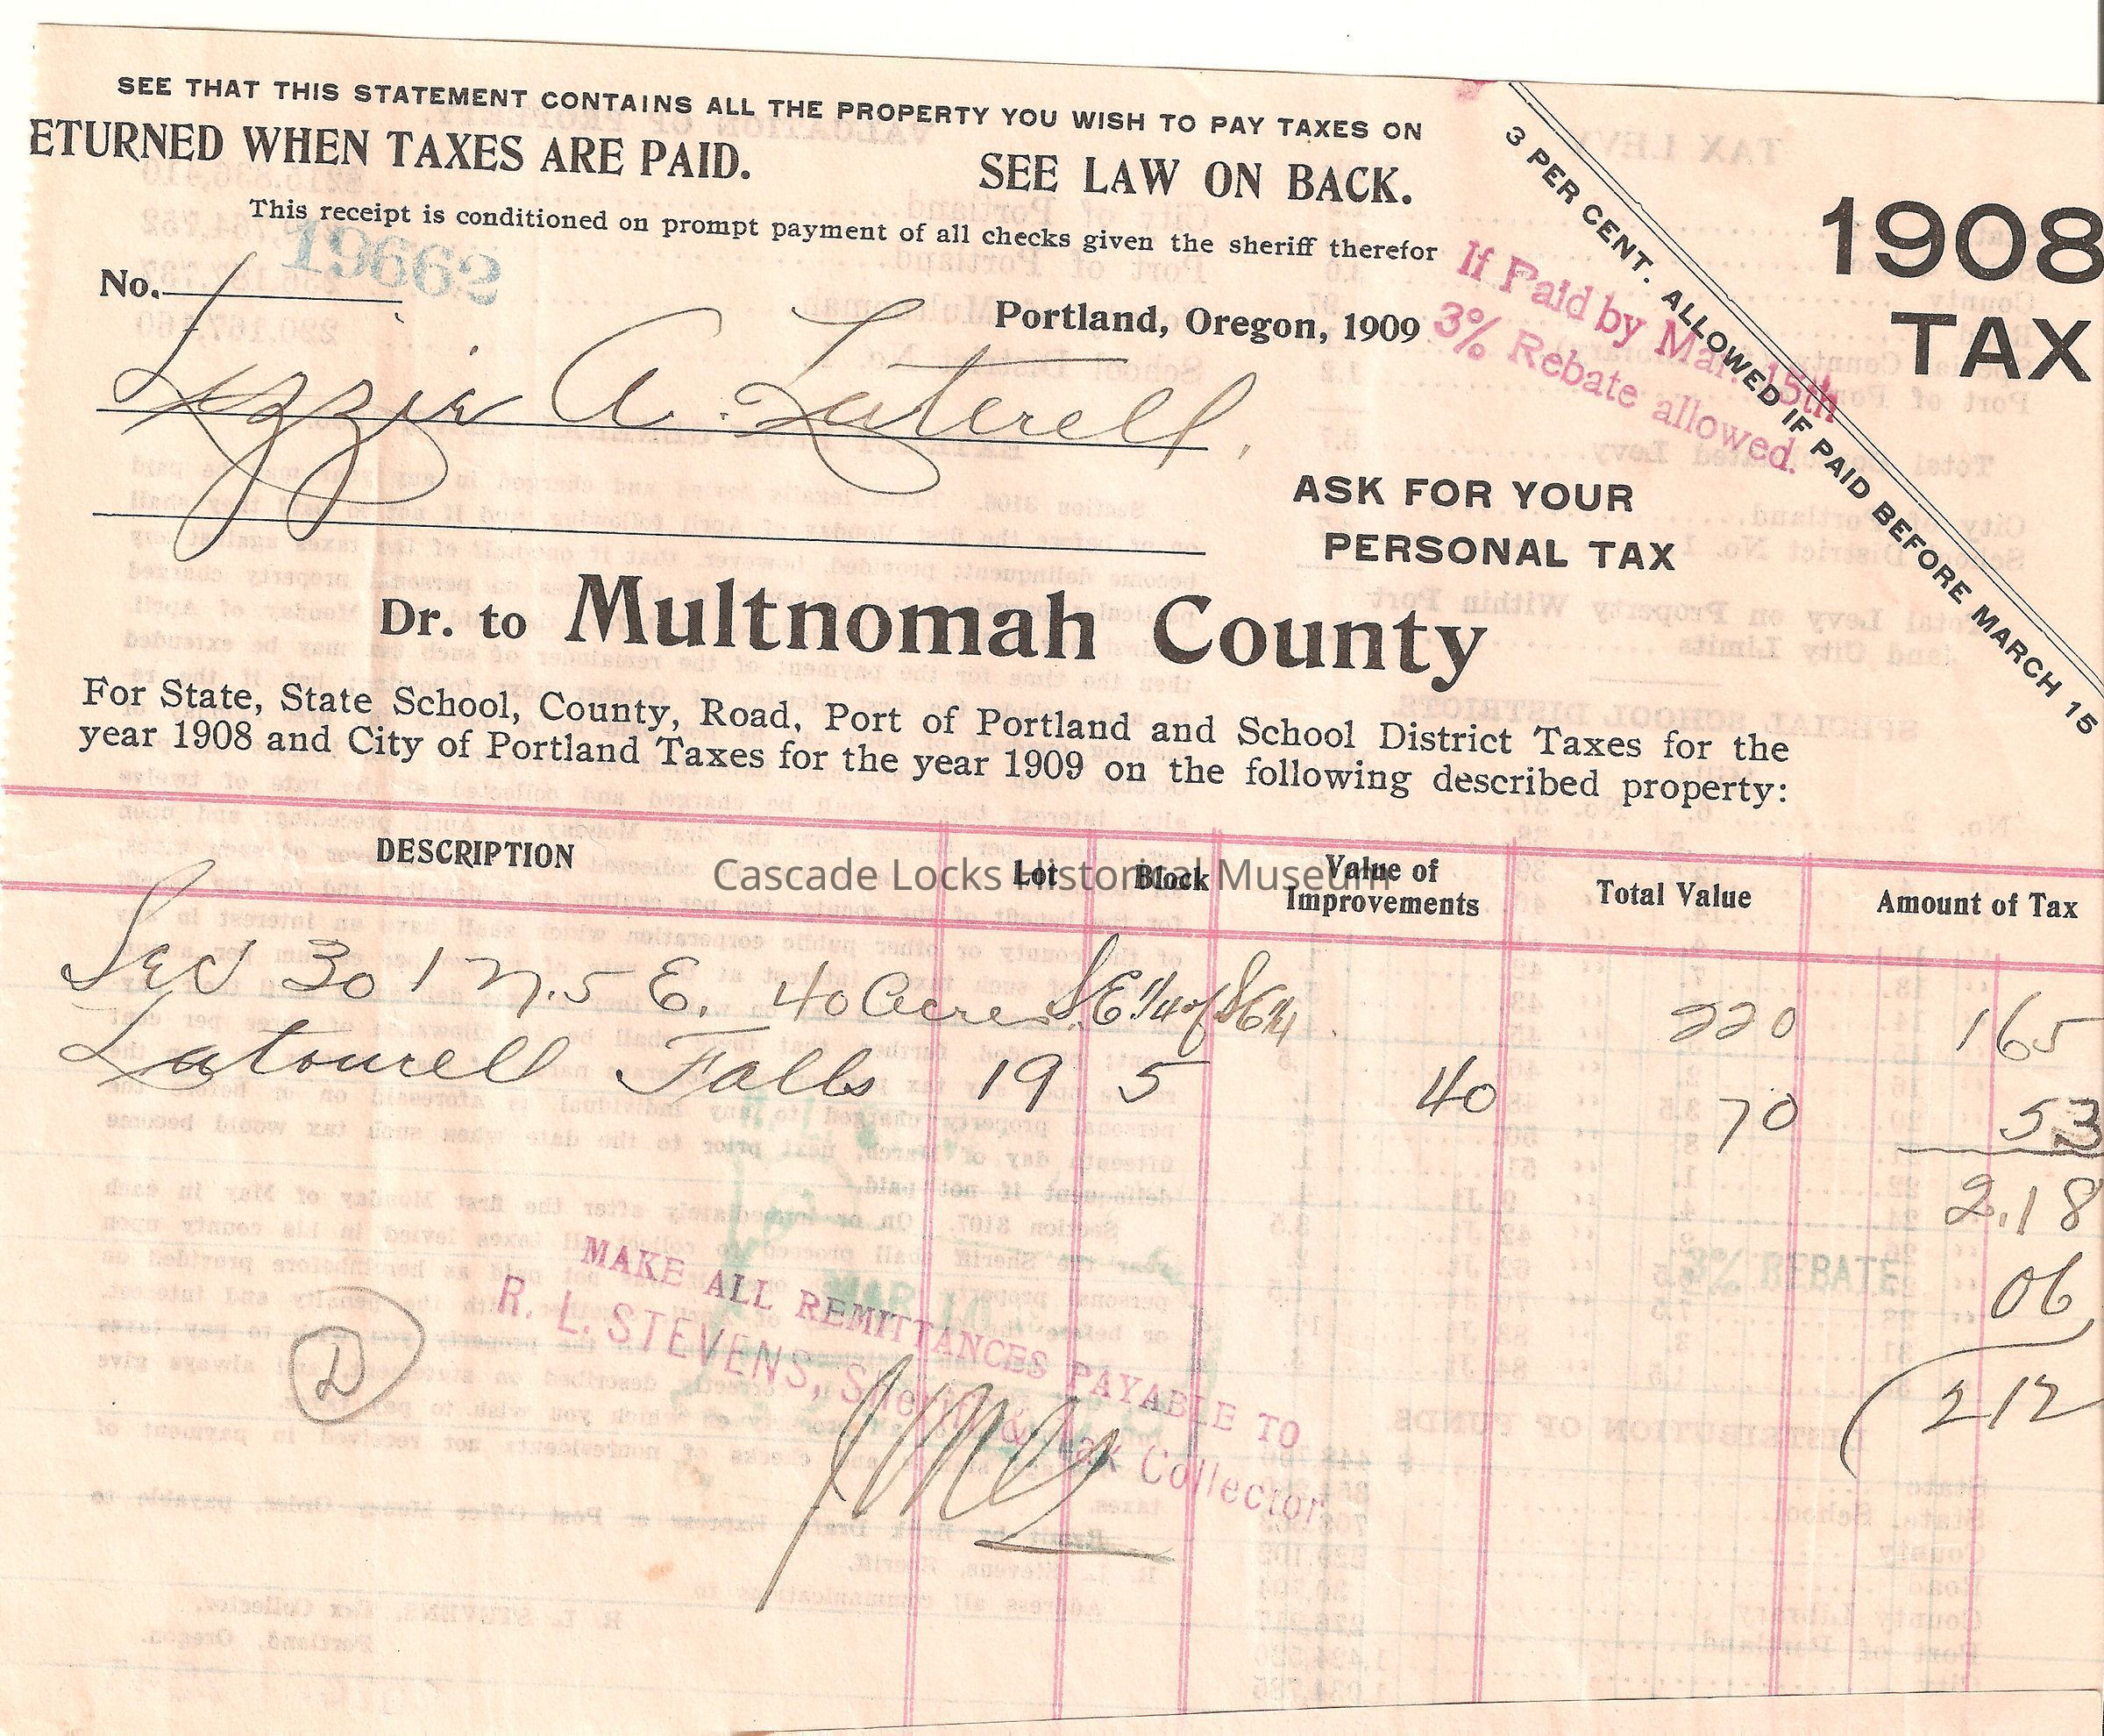 SEE THAT THIS STATEMENT CONTAINS ALL THE PROPERTY YOU WISH TO PAY TAXES ON
ETURNED WHEN TAXES ARE PAID. SEE LAW ON BACK.
This receipt is conditioned on prompt payment of all checks given the sheriff therefor
3 PER CENT. ALLOWED IF PAID BEFORE MARCH 15
1908
TAX
No. 19662
Portland, Oregon, 1909
If Paid by Mar. 15th
3% Rebate allowed.
Lizzie A. Laterell,
ASK FOR YOUR
PERSONAL TAX
Dr. to Multnomah County
For State, State School, County, Road, Port of Portland and School District Taxes for the
year 1908 and City of Portland Taxes for the year 1909 on the following described property:
DESCRIPTION Lot Block Value of Improvements Total Value Amount of Tax
Cascade Locks Historical Museum
Sec 30 1 N. 5 E. 40 Acres S.E 1/4 of SE 1/4 220 165
Latourell Falls 19 5 40 70 53
2.18
3% REBATE 06
212
D
MAKE ALL REMITTANCES PAYABLE TO
R. L. STEVENS, Sheriff & Tax Collector